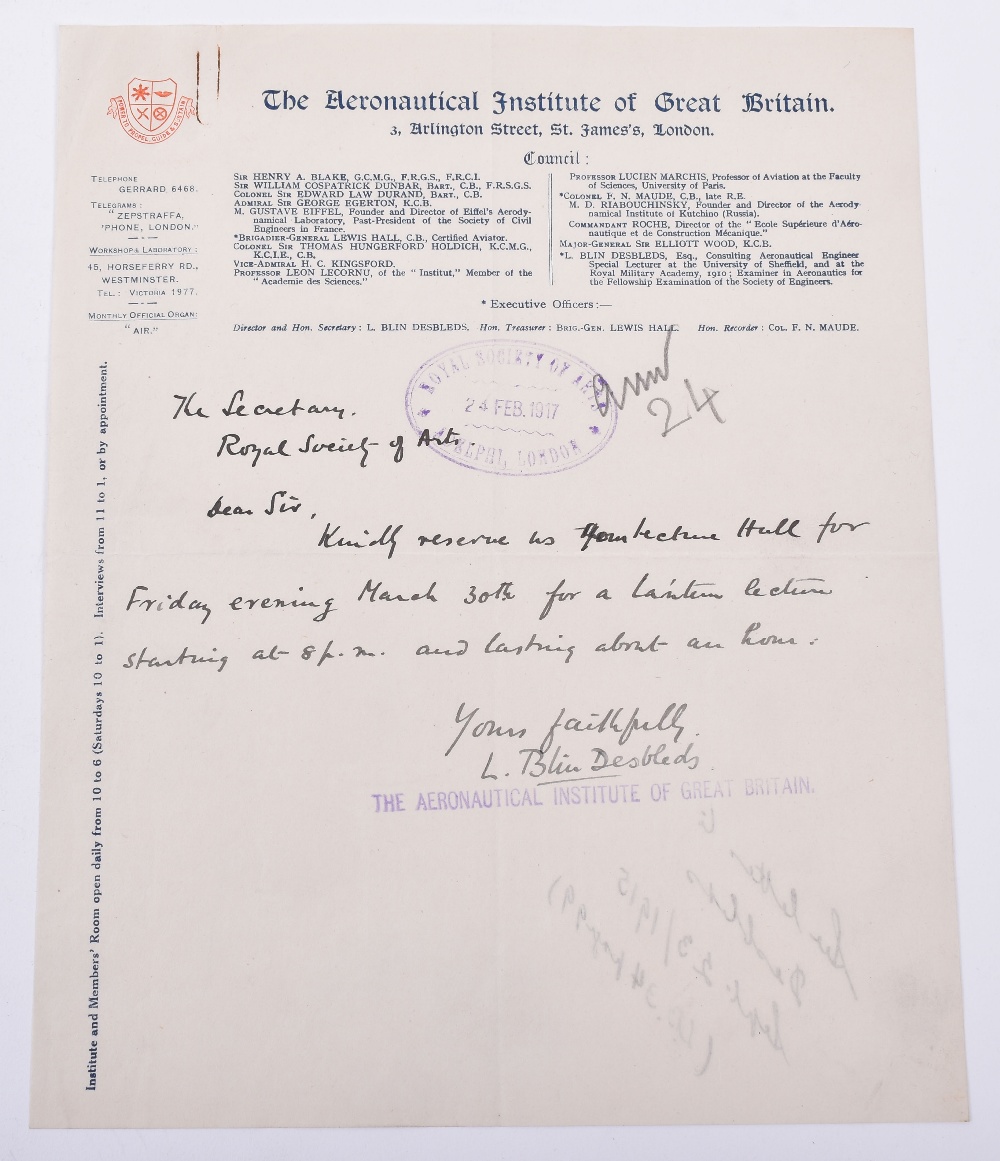 The Aeronautical Institute of Great Britain.
3, Arlington Street, St. James's, London.
Council:
TELEPHONE
GERRARD 6468.
TELEGRAMS:
"ZEPSTRAFFA,
'PHONE, LONDON."
WORKSHOP & LABORATORY:
45, HORSEFERRY RD.,
WESTMINSTER.
TEL.: VICTORIA 1977.
MONTHLY OFFICIAL ORGAN:
"AIR."
SIR HENRY A. BLAKE, G.C.M.G., F.R.G.S., F.R.C.I.
SIR WILLIAM COSPATRICK DUNBAR, BART., C.B., F.R.S.G.S.
COLONEL SIR EDWARD LAW DURAND, BART., C.B.
ADMIRAL SIR GEORGE EGERTON, K.C.B.
M. GUSTAVE EIFFEL, Founder and Director of Eiffel's Aerody-
namical Laboratory, Past-President of the Society of Civil
Engineers in France.
*BRIGADIER-GENERAL LEWIS HALL, C.B., Certified Aviator.
COLONEL SIR THOMAS HUNGERFORD HOLDICH, K.C.M.G.,
K.C.I.E., C.B.
VICE-ADMIRAL H. C. KINGSFORD.
PROFESSOR LEON LECORNU, of the "Institut," Member of the
"Academie des Sciences."
PROFESSOR LUCIEN MARCHIS, Professor of Aviation at the Faculty
of Sciences, University of Paris.
*COLONEL F. N. MAUDE, C.B., late R.E.
M. D. RIABOUCHINSKY, Founder and Director of the Aerody-
namical Institute of Kutchino (Russia).
COMMANDANT ROCHE, Director of the "Ecole Supérieure d'Aéro-
nautique et de Construction Mécanique."
MAJOR-GENERAL SIR ELLIOTT WOOD, K.C.B.
*L. BLIN DESBLEDS, Esq., Consulting Aeronautical Engineer
Special Lecturer at the University of Sheffield, and at the
Royal Military Academy, 1910; Examiner in Aeronautics for
the Fellowship Examination of the Society of Engineers.
* Executive Officers:—
Director and Hon. Secretary: L. BLIN DESBLEDS. Hon. Treasurer: BRIG.-GEN. LEWIS HALL. Hon. Recorder: COL. F. N. MAUDE.
Institute and Members' Room open daily from 10 to 6 (Saturdays 10 to 1). Interviews from 11 to 1, or by appointment.
ROYAL SOCIETY OF ARTS
24 FEB. 1917
ADELPHI, LONDON
24
The Secretary.
Royal Society of Arts.
Dear Sir,
Kindly reserve us your lecture Hall for
Friday evening March 30th for a lantern lecture
starting at 8 p.m. and lasting about an hour.
Yours faithfully.
L. Blin Desbleds.
THE AERONAUTICAL INSTITUTE OF GREAT BRITAIN.